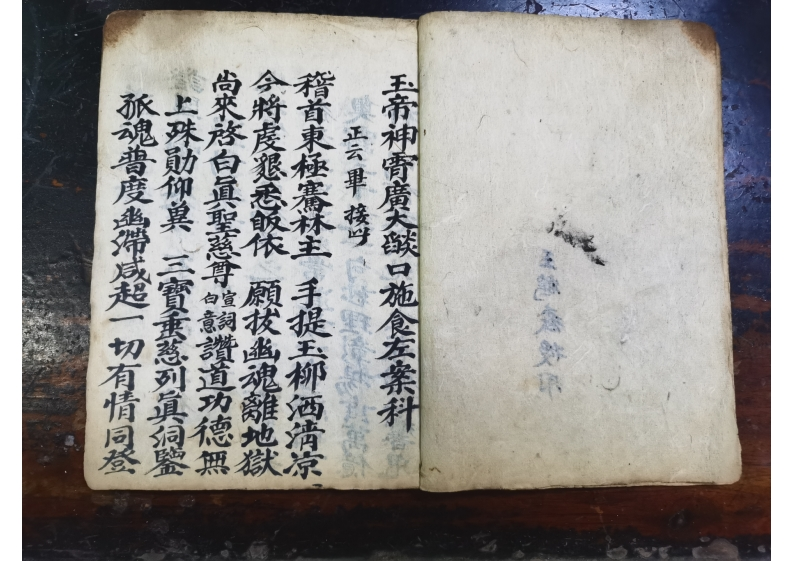 玉帝神霄廣大燄口施食左案科
正云畢 接吽
稽首東極騫林主 手提玉柳洒淸凉
今將虔懇悉皈依 願拔幽魂離地獄
尚來啓白眞聖慈尊 宣詞白意 讚道功德無
上殊勛仰兾 三寶垂慈列眞洞鑒
孤魂普度幽滯咸超一切有情同登